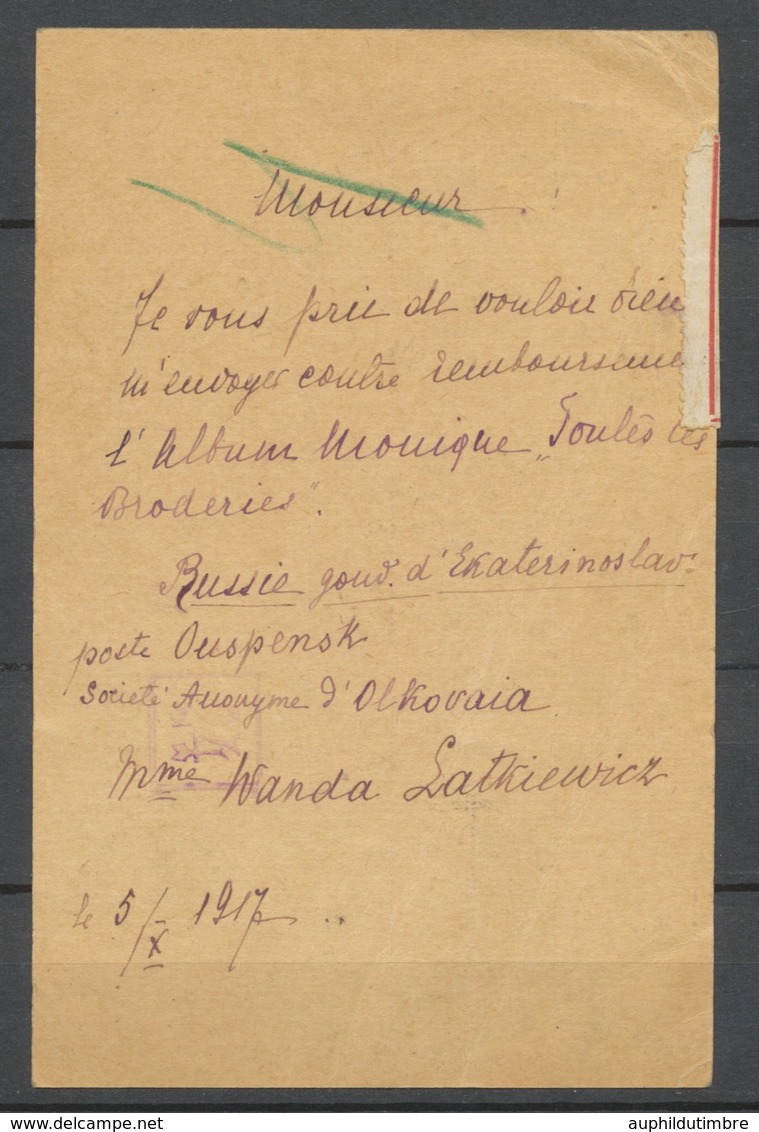 Monsieur !
Je vous prie de vouloir bien
m'envoyer contre rembourseme
l'Album Monique „Toutes les
Broderies".
Russie gouv. d'Ekaterinoslav
poste Ouspensk
Societé Anonyme d'Olkovaia
Mme Wanda Latkiewicz
le 5/X 1917
auphildutimbre